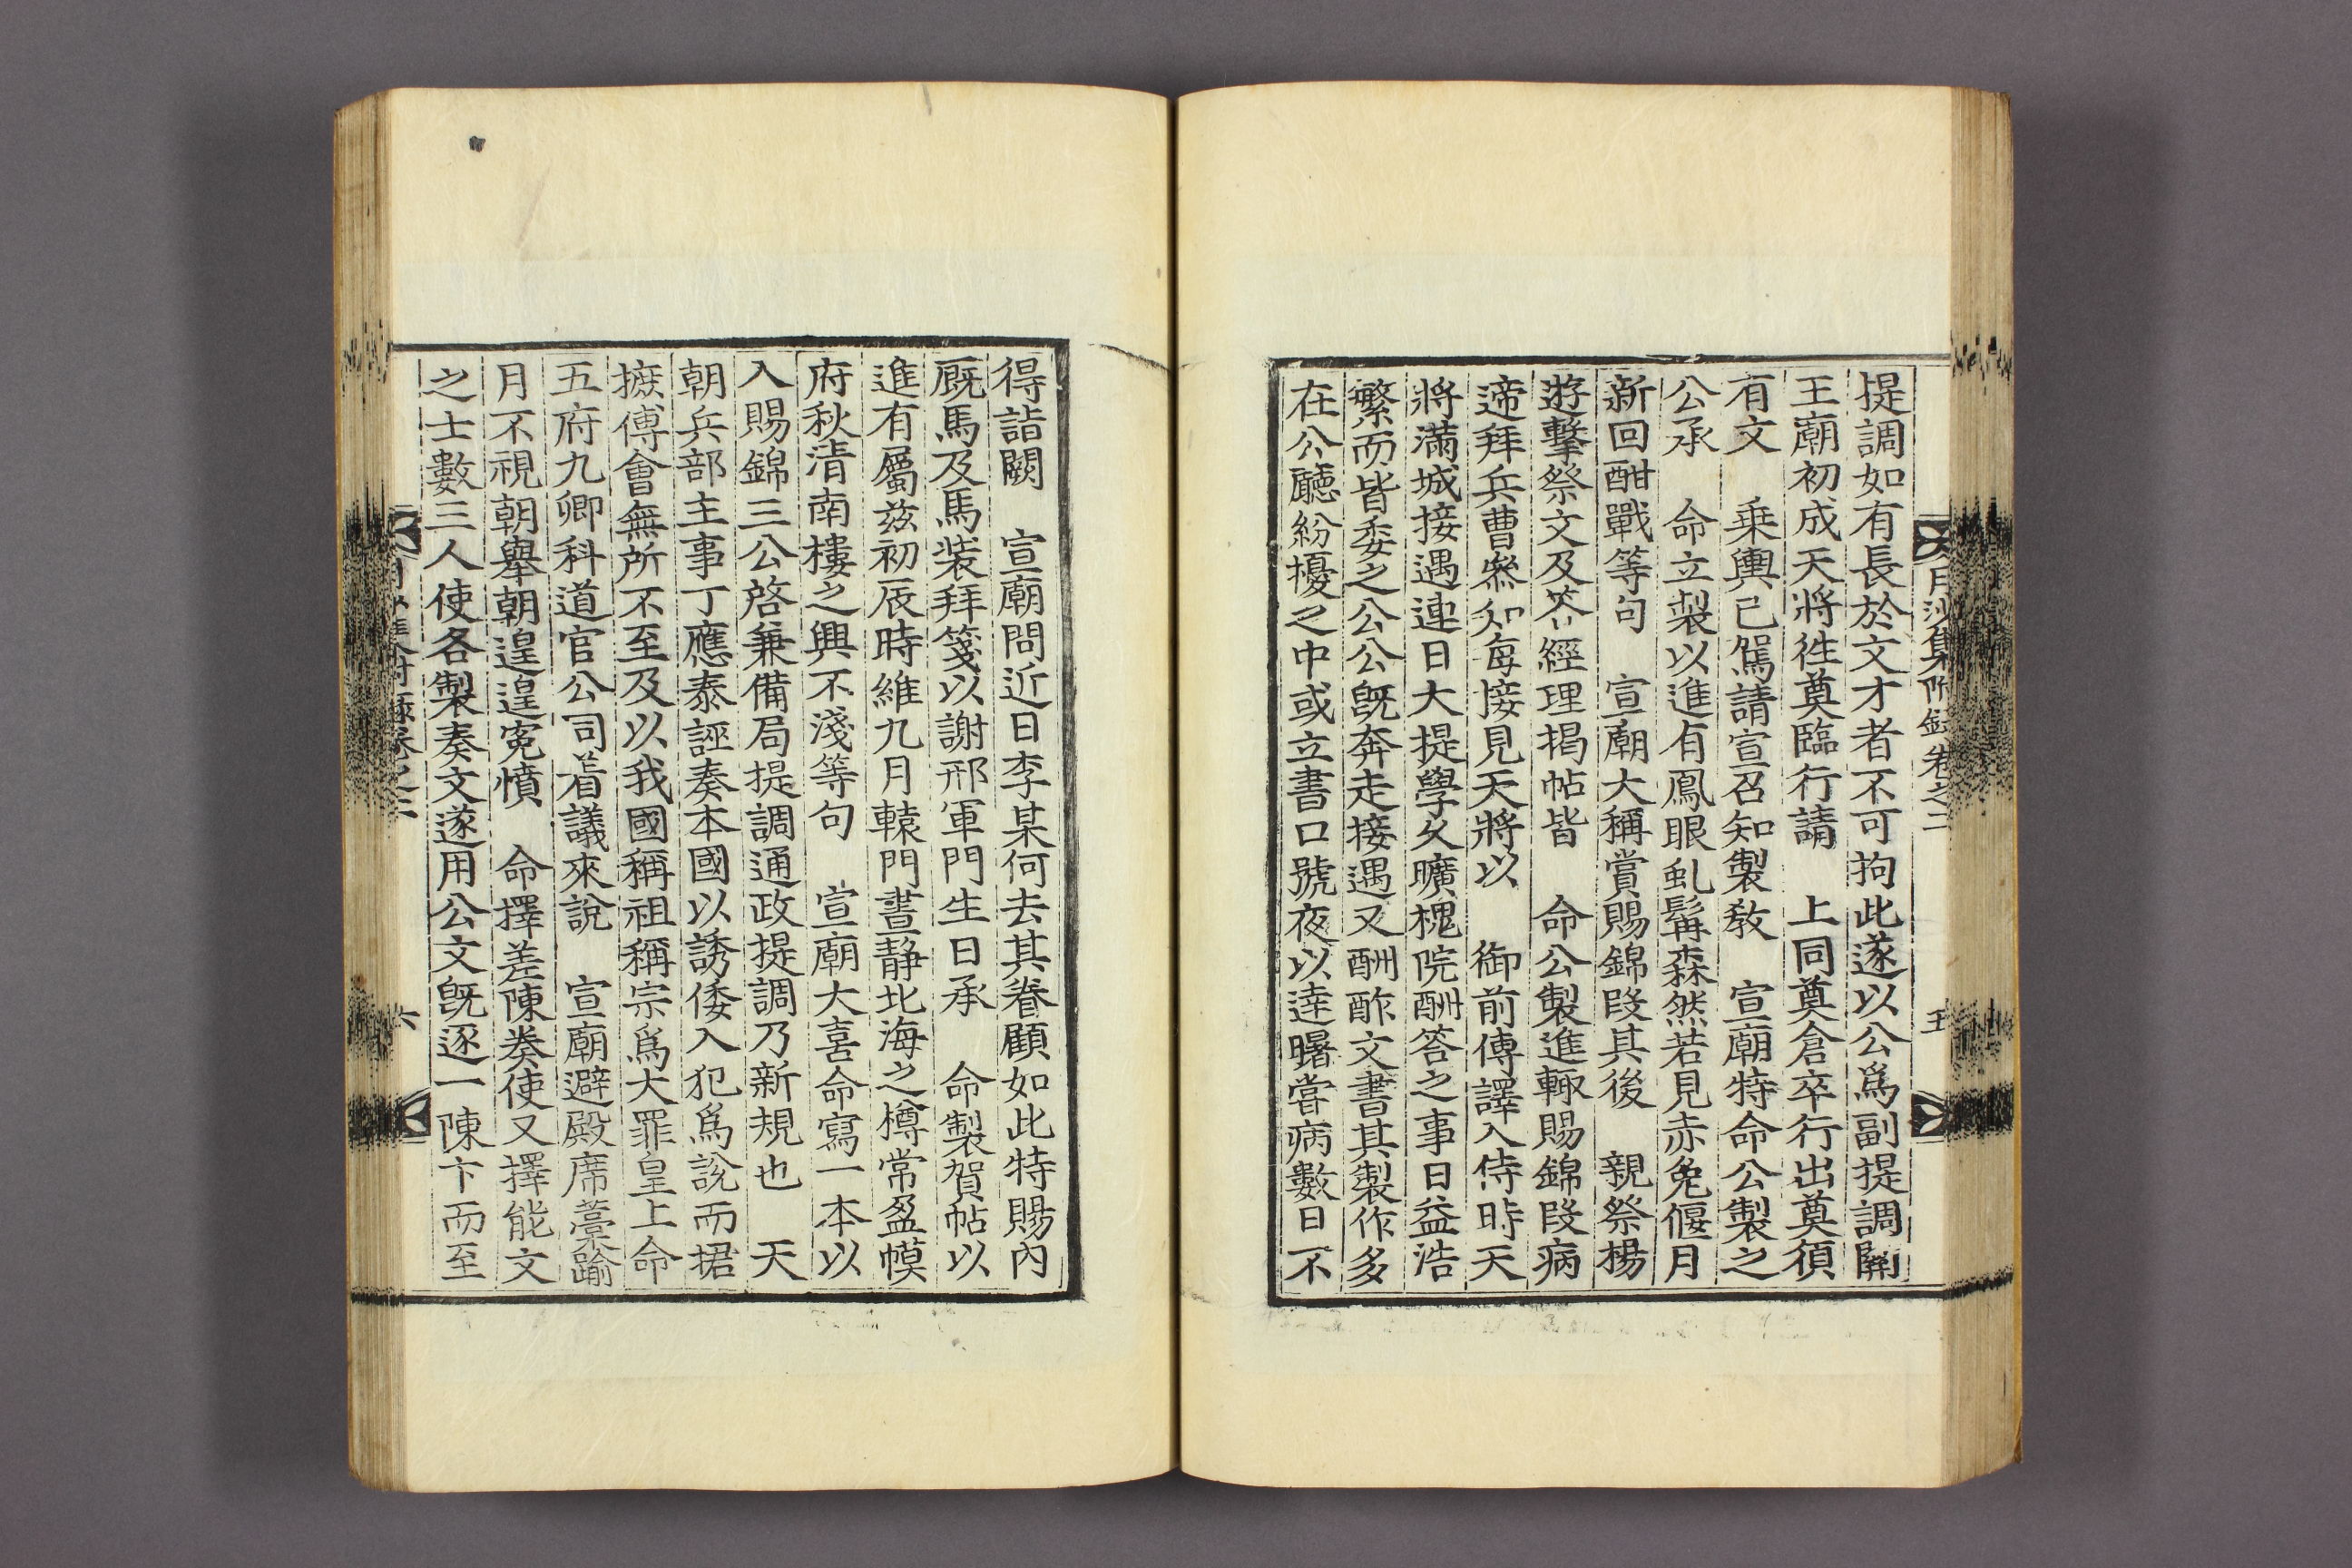 月沙集附錄卷之二 五
提調如有長於文才者不可拘此遂以公爲副提調關
王廟初成天將徃奠臨行請 上同奠倉卒行出奠須
有文 乗輿已駕請宣召知製敎 宣廟特命公製之
公承 命立製以進有鳳眼虬髯森然若見赤兔偃月
新回酣戰等句 宣廟大稱賞賜錦段其後 親祭楊
遊擊祭文及答經理揭帖皆 命公製進輙賜錦段病
遆拜兵曹叅知每接見天將以 御前傳譯入侍時天
將滿城接遇連日大提學久曠槐院酬答之事日益浩
繁而皆委之公公旣奔走接遇又酬酢文書其製作多
在公廳紛擾之中或立書口號夜以逹曙甞病數日不
得詣闕 宣廟問近日李某何去其眷顧如此特賜內
厩馬及馬装拜箋以謝邢軍門生日承 命製賀帖以
進有屬兹初辰時維九月轅門晝静北海之樽常盈幙
府秋淸南樓之興不淺等句 宣廟大喜命寫一本以
入賜錦三公啓兼備局提調通政提調乃新規也 天
朝兵部主事丁應泰誣奏本國以誘倭入犯爲說而捃
摭傅會無所不至及以我國稱祖稱宗爲大罪皇上命
五府九卿科道官公司着議來說 宣廟避殿席藁踰
月不視朝舉朝遑遑寃憤 命擇差陳奏使又擇能文
之士數三人使各製奏文遂用公文旣逐一陳卞而至
六